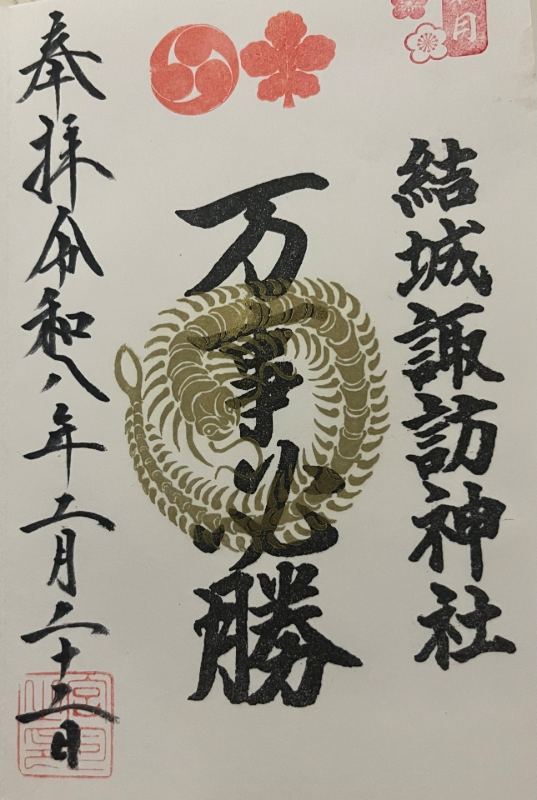 結城諏訪神社
万事必勝
奉拝令和八年二月二十二日
月